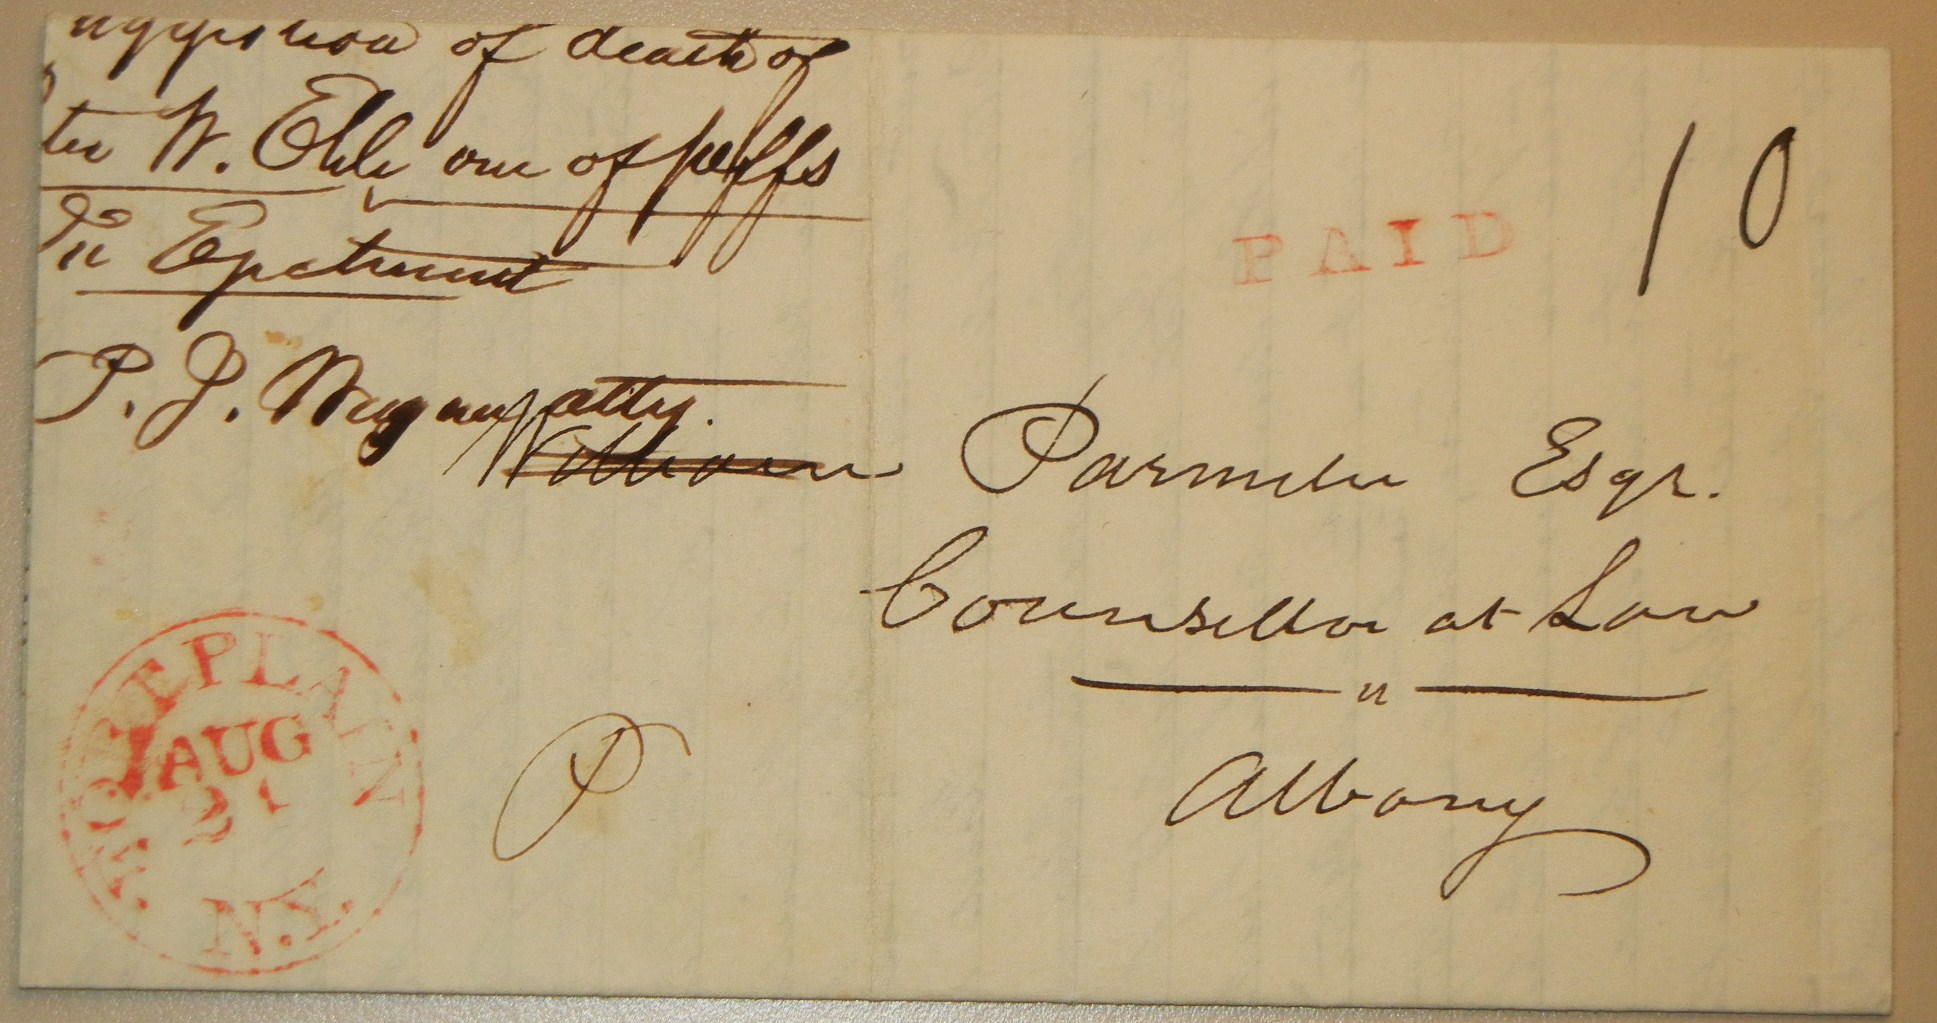 uggestion of death of
ter W. Ehle one of plffs
In Ejectment
P. J. Wagner atty.
PAID
10
William Parmelee Esqr.
Counsellor at Law
Albany
P
CANAJOHARIE
AUG
21
N.Y.